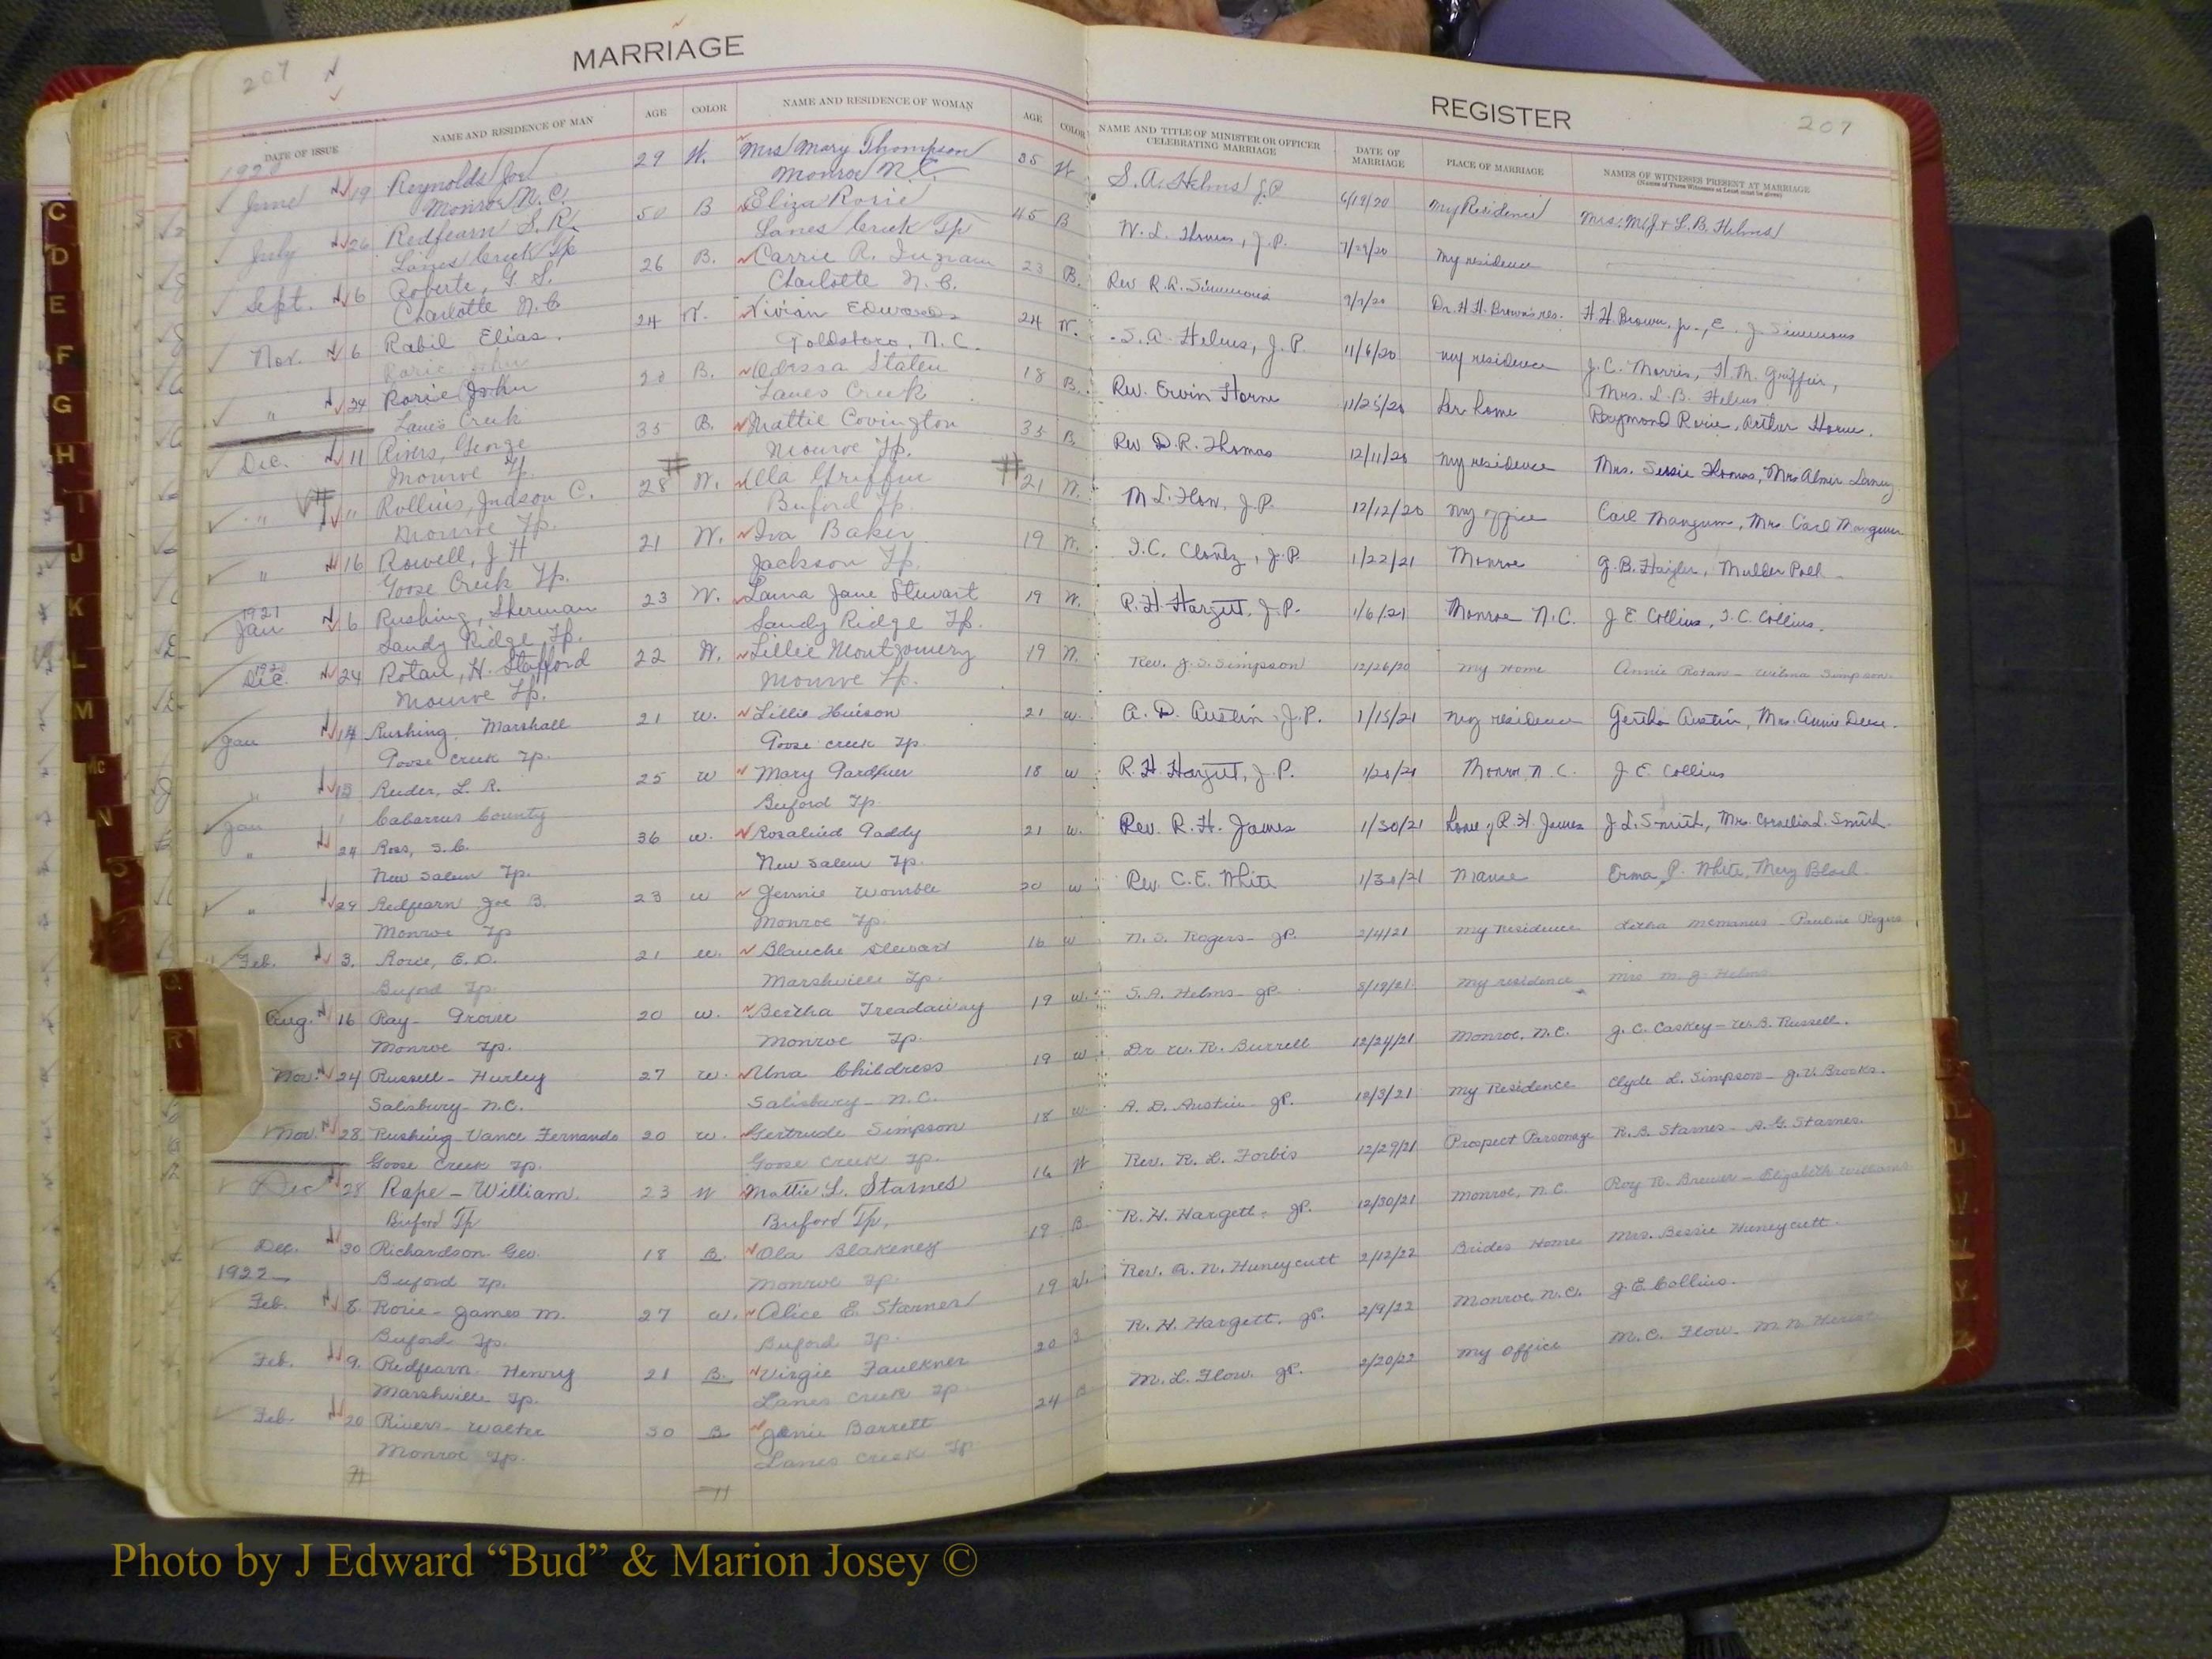 207
MARRIAGE
DATE OF ISSUE NAME AND RESIDENCE OF MAN AGE COLOR NAME AND RESIDENCE OF WOMAN AGE COLOR
1920
June 19 Reynolds Joe 29 W. Mrs Mary Thompson 35 W
Monroe N.C. Monroe N.C.
July 26 Redfearn S. R. 50 B Eliza Rorie 45 B
Lanes Creek Tp Lanes Creek Tp
Sept. 6 Roberts, G. S. 26 B. Carrie R. Ingram 23 B.
Charlotte N.C. Charlotte N.C.
Nov. 6 Rabil Elias. 24 W. Vivian Edwards 24 W.
Rorie John Goldsboro, N.C.
" 24 Rorie John B. Odessa Staten 18 B.
Lanes Creek Lanes Creek
Dec. 11 Rivers, George 35 B. Mattie Covington 35 B.
Monroe Tp. Monroe Tp.
" " Rollins, Judson C. 28 W. Ella Griffin 21 W.
Monroe Tp. Buford Tp.
" 16 Rowell, J H 21 W. Iva Baker 19 W.
Goose Creek Tp. Jackson Tp.
1921
Jan 6 Rushing, Sherman 23 W. Laura Jane Stewart 19 W.
Sandy Ridge Tp. Sandy Ridge Tp.
1920
Dec. 24 Rotan, H. Stafford 22 W. Lillie Montgomery 19 W.
Monroe Tp. Monroe Tp.
Jan 14 Rushing, Marshall 21 w. Lillie 21 w.
Goose Creek Tp. Goose Creek Tp.
" 15 L. R. 25 w Mary 18 w
Jan Cabarrus County Buford Tp.
" 24 Ross, S. C. 36 w. Rosalind Gaddy 21 w.
New Salem Tp. New Salem Tp.
" 29 Redfearn Joe B. 23 w Jennie Womble 20 w
Monroe Tp Monroe Tp.
Feb. 3. Rorie, E. D. 21 w. Blanche Stewart 16 w
Buford Tp. Marshville Tp.
Aug. 16 Ray- Grover 20 w. Bertha Treadaway 19 w.
Monroe Tp. Monroe Tp.
Nov. 24 Russell- Hurley 27 w. Una Childress 19 w.
Salisbury- N.C. Salisbury- N.C.
Nov. 28 Rushing Vance Fernando 20 w. Gertrude Simpson 18 w.
Goose Creek Tp. Goose Creek Tp.
Dec 28 Rape - William. 23 W Mattie L. Starnes 16 W
Buford Tp Buford Tp.
Dec. 30 Richardson Geo. 18 B. Ola Blakeney 19 B.
1922 Buford Tp. Monroe Tp
Feb. 8. Rorie- James M. 27 w. Alice E. Starnes 19 w.
Buford Tp. Buford Tp.
Feb. 9. Redfearn Henry 21 B. Virgie Faulkner 20 B
Marshville Tp. Lanes Creek Tp
Feb. 20 Rivers- Walter 30 B Janie Barrett 24 B
Monroe Tp. Lanes Creek Tp
REGISTER
207
NAME AND TITLE OF MINISTER OR OFFICER CELEBRATING MARRIAGE DATE OF MARRIAGE PLACE OF MARRIAGE NAMES OF WITNESSES PRESENT AT MARRIAGE
(Names of Three Witnesses at Least must be given)
S. A. Helms J.P. 6/19/20 My Residence Mrs. M.J. & L.B. Helms
W. L. Thomas, J.P. 7/29/20 My residence
Rev R.R. Simmons 9/7/20 Dr. H.H. Brown's res. H.H. Brown, Jr., E. J. Simmons
S. A. Helms, J.P. 11/6/20 my residence J.C. Morris, H.M. Griffin,
Mrs. L.B. Helms
Rev. Ervin Horne 11/25/20 her home Raymond Rorie, Arthur Horne.
Rev D.R. Thomas 12/11/20 my residence Mrs. Susie Thomas, Mrs Almer Laney
M. L. Flow, J.P. 12/12/20 my office Carl Mangum, Mrs. Carl Mangum
I.C. Clontz, J.P. 1/22/21 Monroe G.B. Haigler,
R.H. Hargett, J.P. 1/6/21 Monroe N.C. J E Collins, I.C. Collins.
Rev. J.S. Simpson 12/26/20 My Home Annie Rotan- Wilma Simpson.
A. D. Austin, J.P. 1/15/21 my residence Gertha Austin, Mrs. Annie Deese.
R.H. Hargett, J.P. 1/20/21 Monroe, N.C. J. E. Collins
Rev. R.H. James 1/30/21 home of R.H. James J.L. Smith, Mrs. Smith.
Rev. C.E. White 1/30/21 Manse Erma P. White, Mary Black.
N. S. Rogers- JP. 2/4/21 My residence Letha McManus - Pauline Rogers
S.A. Helms- JP. 8/19/21. My residence Mrs M. J. Helms
Dr W. R. Burrell 12/24/21 Monroe, N.C. J. C. Caskey - W. B. Russell.
A. D. Austin JP. 12/3/21 My Residence Clyde L. Simpson - J.V. Brooks.
Rev. R. L. Forbis 12/29/21 Prospect Parsonage R.B. Starnes - A.G. Starnes.
R.H. Hargett. JP. 12/30/21 Monroe, N.C. Roy R. Brewer - Elizabeth Williams
Rev. A. N. Huneycutt 2/12/22 Brides Home Mrs. Bessie Huneycutt.
R. H. Hargett. JP. 2/9/22 Monroe, N.C. J.E. Collins.
M. L. Flow. JP. 2/20/22 My Office M. C. Flow.
C
D
E
F
G
H
I
J
K
L
M
Mc
N
O
Q
R
Photo by J Edward “Bud” & Marion Josey ©